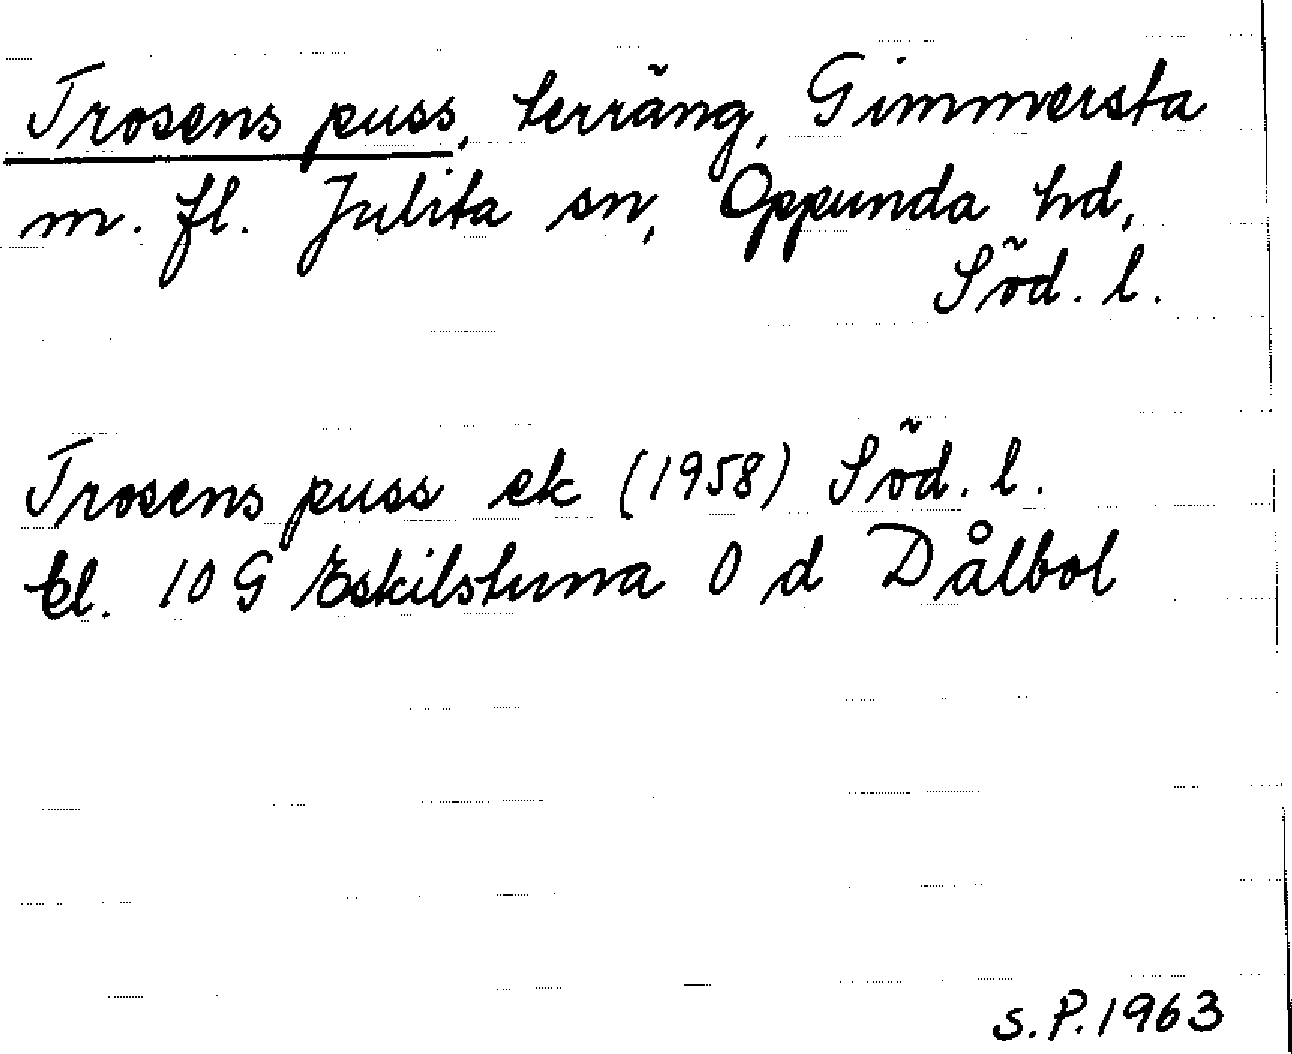 Trosens puss, terräng, Gimmersta
m. fl. Julita sn, Oppunda hd,
Söd. l.
Trosens puss ek (1958) Söd. l.
bl. 10 G Eskilstuna 0 d Dålbol
S.P. 1963